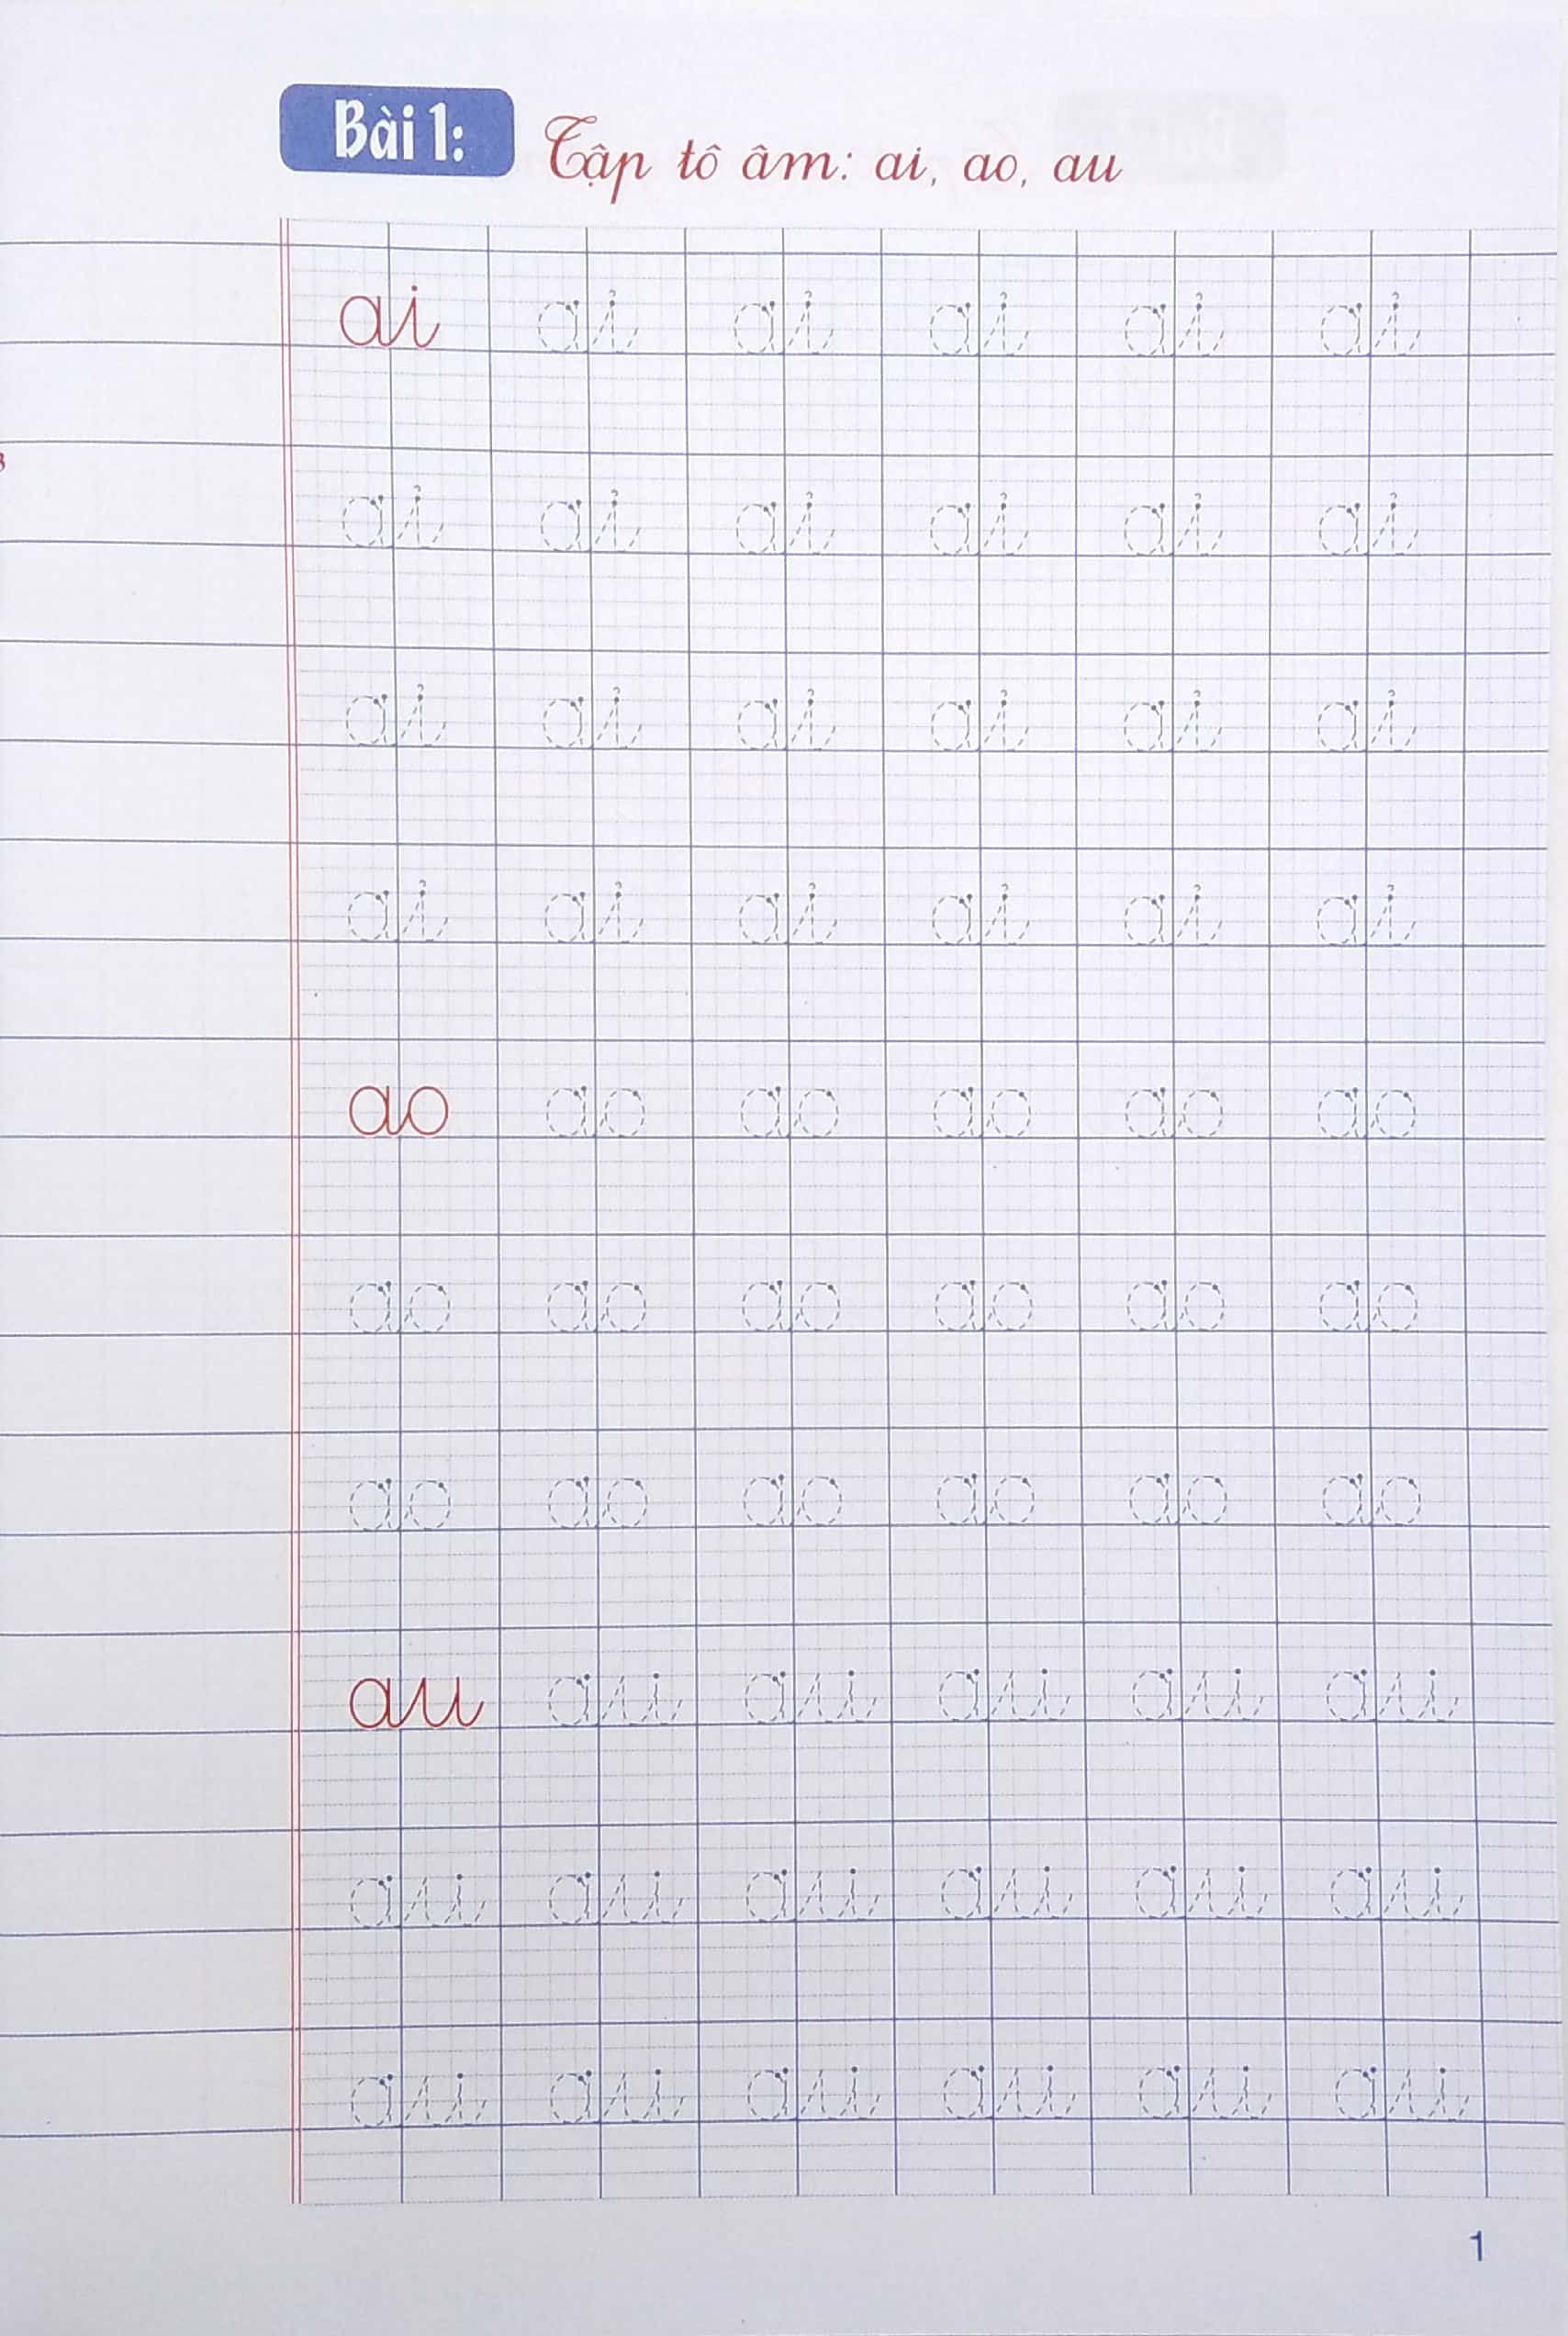 Bài 1: Tập tô âm: ai, ao, au
ai ai ai ai ai ai
ai ai ai ai ai ai
ai ai ai ai ai ai
ai ai ai ai ai ai
ao ao ao ao ao ao
ao ao ao ao ao ao
ao ao ao ao ao ao
au au au au au au
au au au au au au
au au au au au au
1